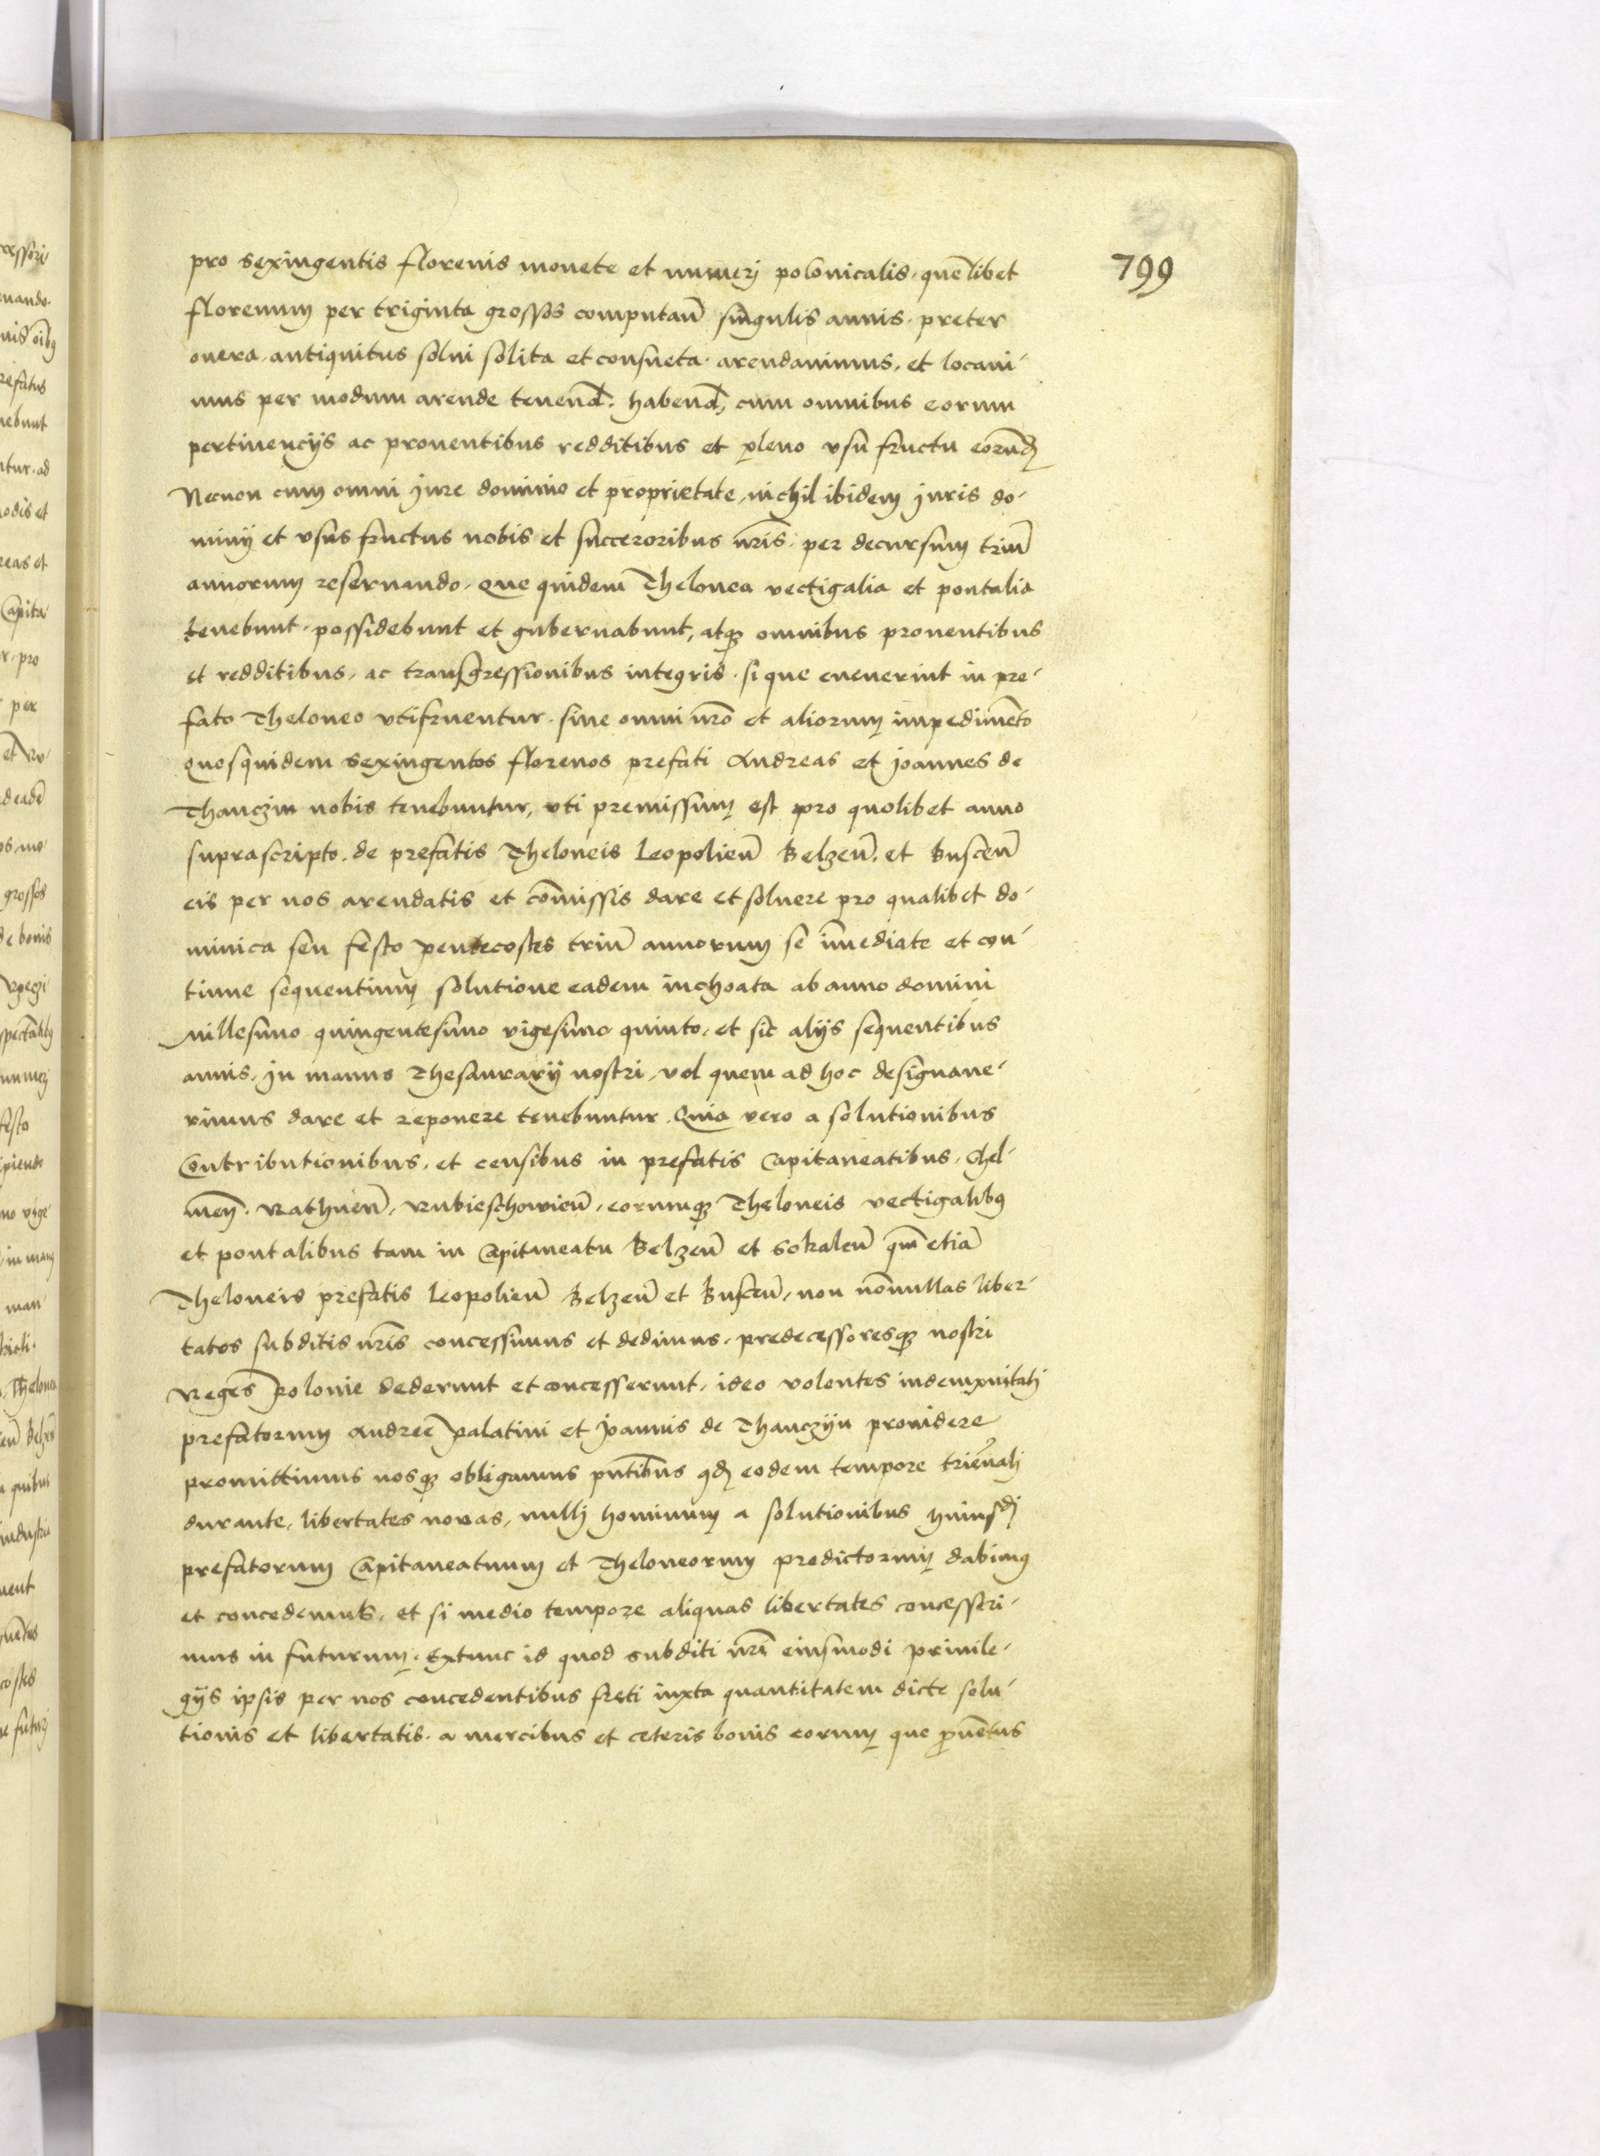 799
pro sexingentis florenis monete et numerj polonicalis, quēlibet
florenum per triginta grossos computañ singulis annis. preter
onera antiquitus solui solita et consueta. arendauimus, et locaui-
mus per modum arende tenend. habend, cum omnibus eorum
pertinencijs ac prouentibus redditibus et pleno vsu fructu eorund
Necnon cum omni jure dominio et proprietate, nichil ibidem juris do-
minij et vsus fructus nobis et succeroribus nr̄is. per decursum triū
annorum reseruando. Que quidem Thelonea vectigalia et pontalia
tenebunt. possidebunt et gubernabunt, atqȝ omnibus prouentibus
et redditibus, ac transgressionibus integris. si que euenerint in pre-
fato Theloneo vtifruentur. sine omni nr̄o et aliorum impedimēto
Quosquidem sexingentos florenos prefati Andreas et joannes de
Thanczin nobis tenebuntur, vti premissum est pro quolibet anno
suprascripto. de prefatis Theloneis Leopolieñ Belzeñ. et Busceñ
eis per nos arendatis et com̄issis dare et soluere pro qualibet do-
minica seu festo pentecostes triū annorum se īmediate et con-
tinue sequentium solutione eadem inchoata ab anno domini
millesimo quingentesimo vigesimo quinto, et sic alijs sequentibus
annis. In manus Thesaurarij nostri, vel quem ad hoc designaue-
rimus dare et reponere tenebuntur. Quia vero a solutionibus
Contributionibus, et censibus in prefatis Capitaneatibus. Chel-
meñ. Rathneñ, Rubieschowieñ, eorumqȝ Theloneis vectigalibȝ
et pontalibus tam in Capitaneatu Belzeñ et Sokaleñ qm̄ etiā
Theloneis prefatis Leopolieñ Belzeñ et Busceñ, non nōnullas liber-
tates subditis nr̄is concessimus et dedimus. predecessoresqȝ nostri
Reges polonie dederunt et concesserunt, ideo volentes indempnitatj
prefatorum Andree palatini et joannis de Thanczijn prouidere
promittimus nosqȝ obligamus pn̄tibus qd eodem tempore triēnalj
durante, libertates nouas, nullj hominum a solutionibus huiusdj
prefatorum Capitaneatuum et Theloneorum predictorum dabimȝ
et concedemus, et si medio tempore aliquas libertates concesseri-
mus in futurum. Extunc id quod subditi nr̄i eiusmodi priuile-
gijs ipsis per nos concedentibus freti iuxta quantitatem dicte solu-
tionis et libertatis. a mercibus et ceteris bonis eorum que prouētus